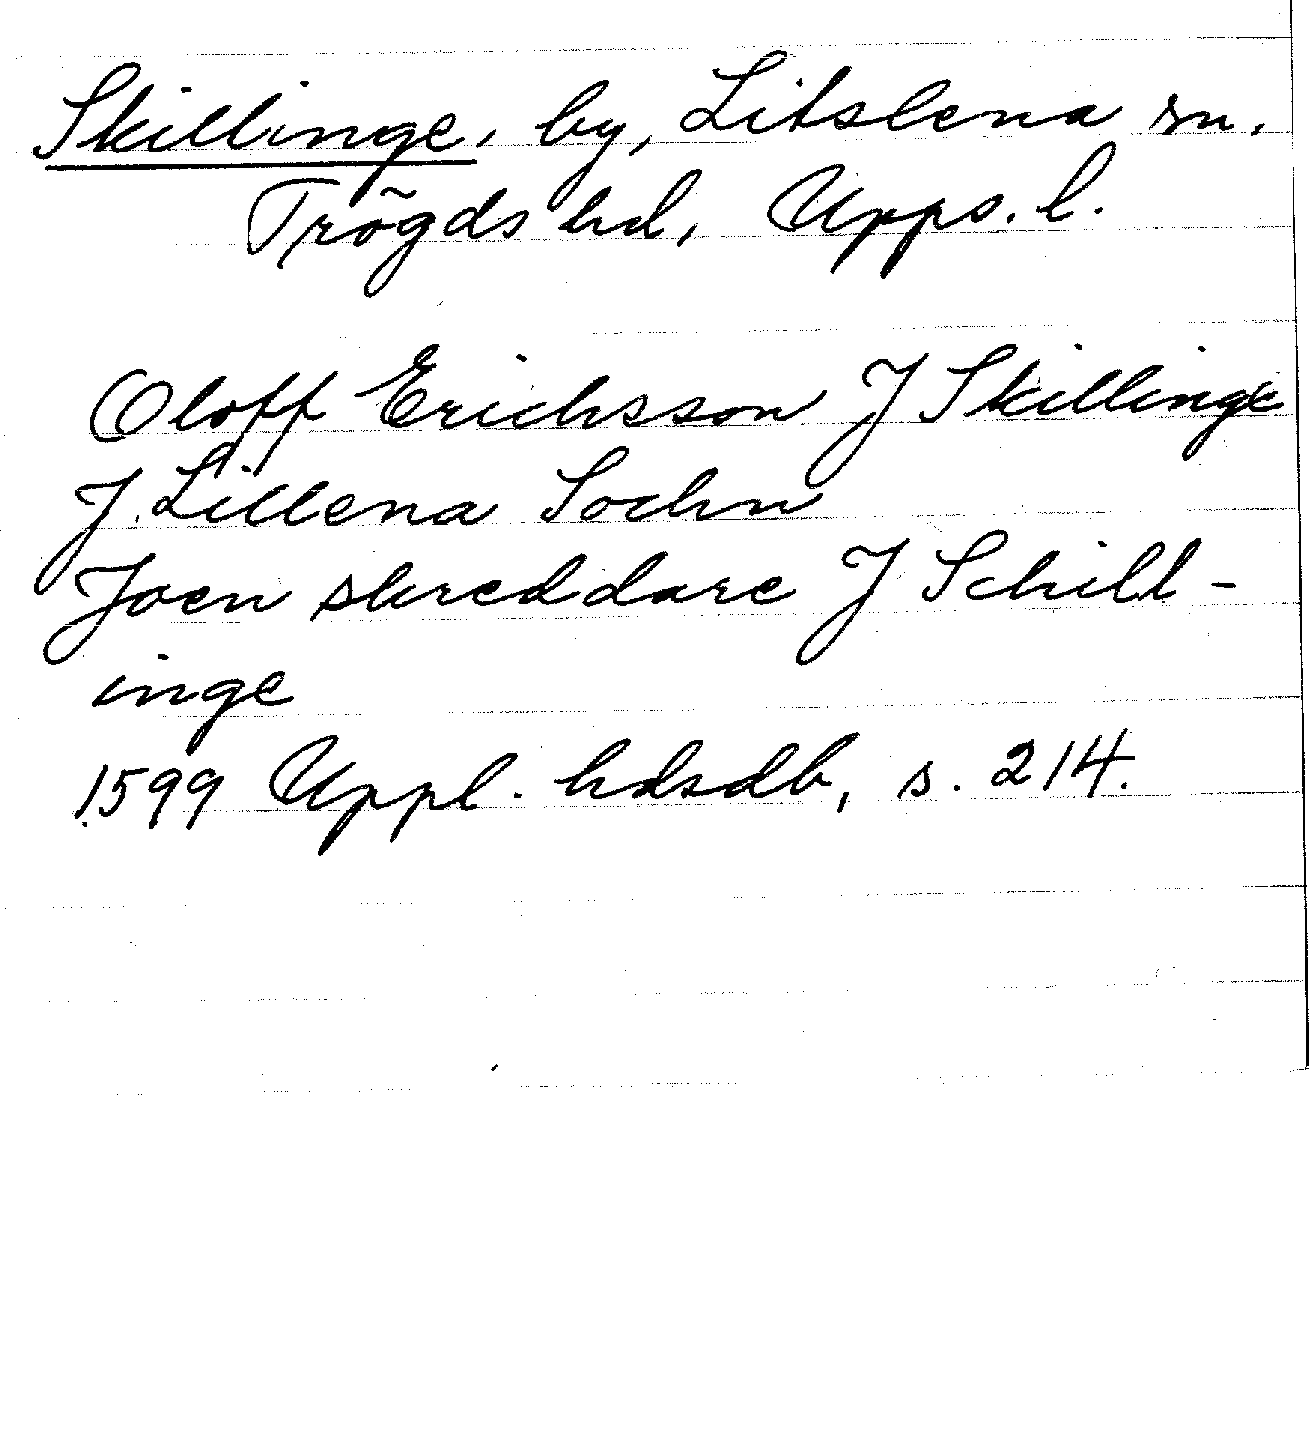 Skillinge, by, Litslena sn.
Trögds hd, Upps. l.
Oloff Erichsson J Skillinge
J Lillena Sochn
Joen skreddare J Schill-
inge
1599 Uppl. hdsdb, s. 214.